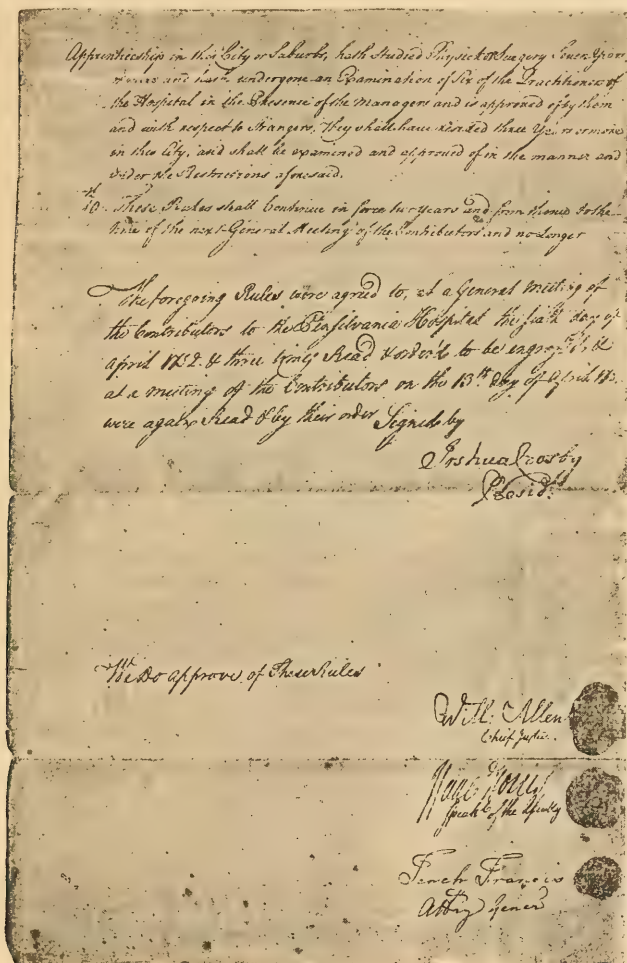 Apprenticeship in this City or Suburbs, hath Studied Physick or Surgery Seven Years
or more and hath undergone an Examination of Six of the Practitioners of
the Hospital in the Presence of the Managers and is approved of by them
and with respect to Strangers, they shall have resided three Years or more
in this City, and shall be examined and approved of in the manner and
under the Restrictions aforesaid.
10th These Rules shall Continue in force two years and from thence to the
time of the next General Meeting of the Contributors and no longer
The foregoing Rules were agreed to, at a General meeting of
the Contributors to the Pensilvania Hospital the day of
April 1752. & three times Read & order'd to be engross'd, &
at a meeting of the Contributors on the 13th day of April
were again Read & by their order Signed by
Joshua Crosby
Presidt
We Do approve of These Rules
Will: Allen
Chief Justice.
Isaac Norris
Speakr of the Assembly
Tench Francis
Attry General